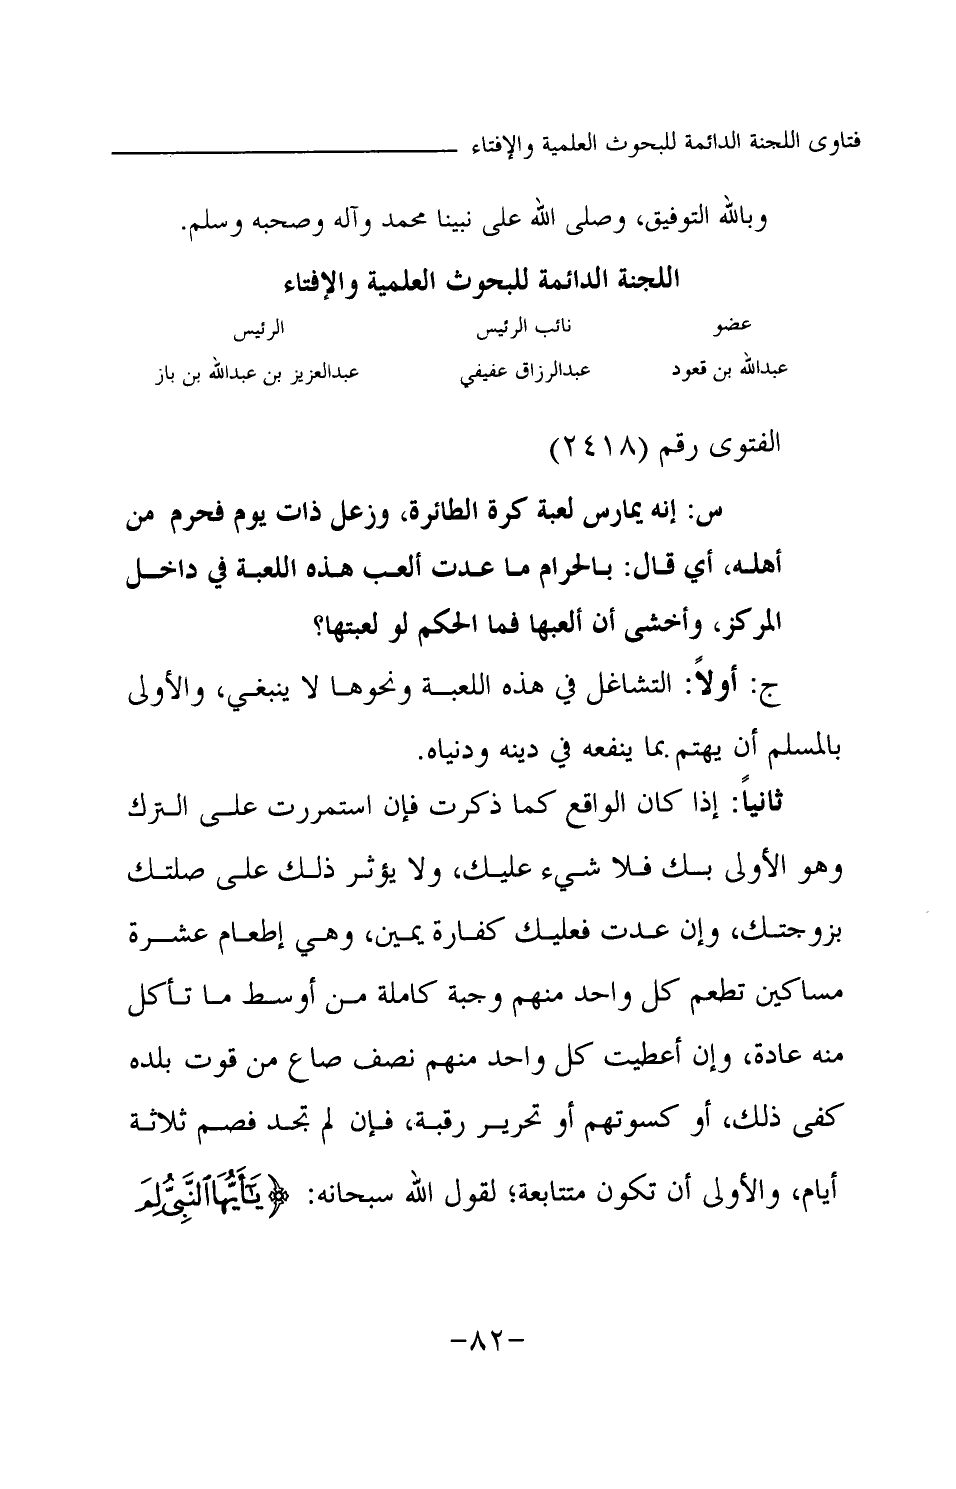 فتاوى اللجنة الدائمة للبحوث العلمية والإفتاء
وبالله التوفيق، وصلى الله على نبينا محمد وآله وصحبه وسلم.
اللجنة الدائمة للبحوث العلمية والإفتاء
عضو نائب الرئيس الرئيس
عبدالله بن قعود عبدالرزاق عفيفي عبدالعزيز بن عبدالله بن باز
الفتوى رقم (٢٤١٨)
س: إنه يمارس لعبة كرة الطائرة، وزعل ذات يوم فحرم من
أهله، أي قال: بالحرام ما عدت ألعب هذه اللعبة في داخل
المركز، وأخشى أن ألعبها فما الحكم لو لعبتها؟
ج: أولاً: التشاغل في هذه اللعبة ونحوها لا ينبغي، والأولى
بالمسلم أن يهتم بما ينفعه في دينه ودنياه.
ثانياً: إذا كان الواقع كما ذكرت فإن استمررت على الترك
وهو الأولى بك فلا شيء عليك، ولا يؤثر ذلك على صلتك
بزوجتك، وإن عدت فعليك كفارة يمين، وهي إطعام عشرة
مساكين تطعم كل واحد منهم وجبة كاملة من أوسط ما تأكل
منه عادة، وإن أعطيت كل واحد منهم نصف صاع من قوت بلده
كفى ذلك، أو كسوتهم أو تحرير رقبة، فإن لم تجد فصم ثلاثة
أيام، والأولى أن تكون متتابعة؛ لقول الله سبحانه: ﴿يَٰٓأَيُّهَا ٱلنَّبِيُّ لِمَ
-٨٢-